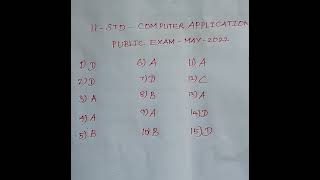 11-STD - COMPUTER APPLICATION
PUBLIC EXAM - MAY-2022
1) D 6) A 11) A
2) D 7) D 12) C
3) A 8) B 13) A
4) A 9) A 14) D
5) B 10) B 15) D